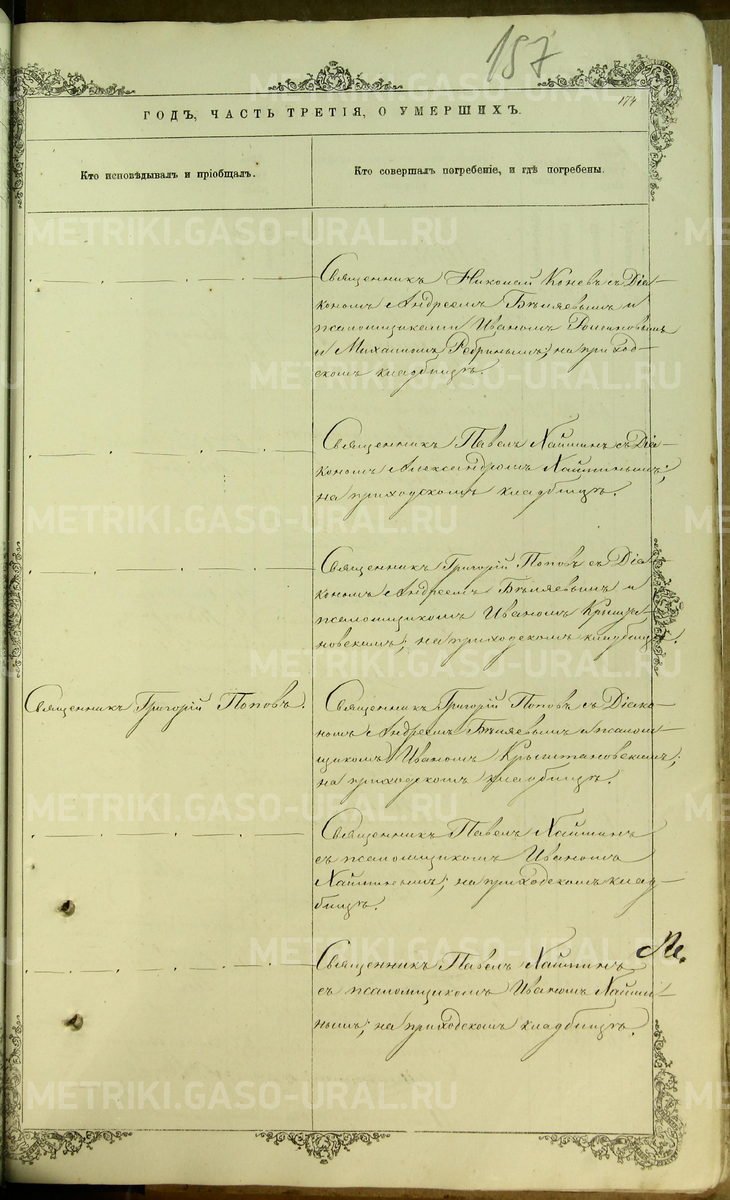 157
174
ГОДЪ, ЧАСТЬ ТРЕТІЯ, О УМЕРШИХЪ.
Кто исповѣдывалъ и пріобщалъ.
Кто совершалъ погребеніе, и гдѣ погребены.
Священникъ Николай Коневъ съ Діа-
кономъ Андреемъ Бѣляевымъ и
псаломщиками Иваномъ
и Михаиломъ Ребринымъ; на приход-
скомъ кладбищѣ.
Священникъ Павелъ Наймтинъ съ Діа-
кономъ Александромъ;
на приходскомъ кладбищѣ.
Священникъ Григорій Поповъ съ Діа-
кономъ Андреемъ Бѣляевымъ и
псаломщикомъ Иваномъ Крышта-
новскимъ; на приходскомъ кладбищѣ.
Священникъ Григорій Поповъ.
Священникъ Григорій Поповъ съ Діако-
номъ Андреемъ Бѣляевымъ и псалом-
щикомъ Иваномъ Крыштановскимъ;
на приходскомъ кладбищѣ.
Священникъ Павелъ
съ псаломщикомъ Иваномъ
на приходскомъ клад-
бищѣ.
Священникъ Павелъ
съ псаломщикомъ Иваномъ
на приходскомъ кладбищѣ.
METRIKI.GASO-URAL.RU